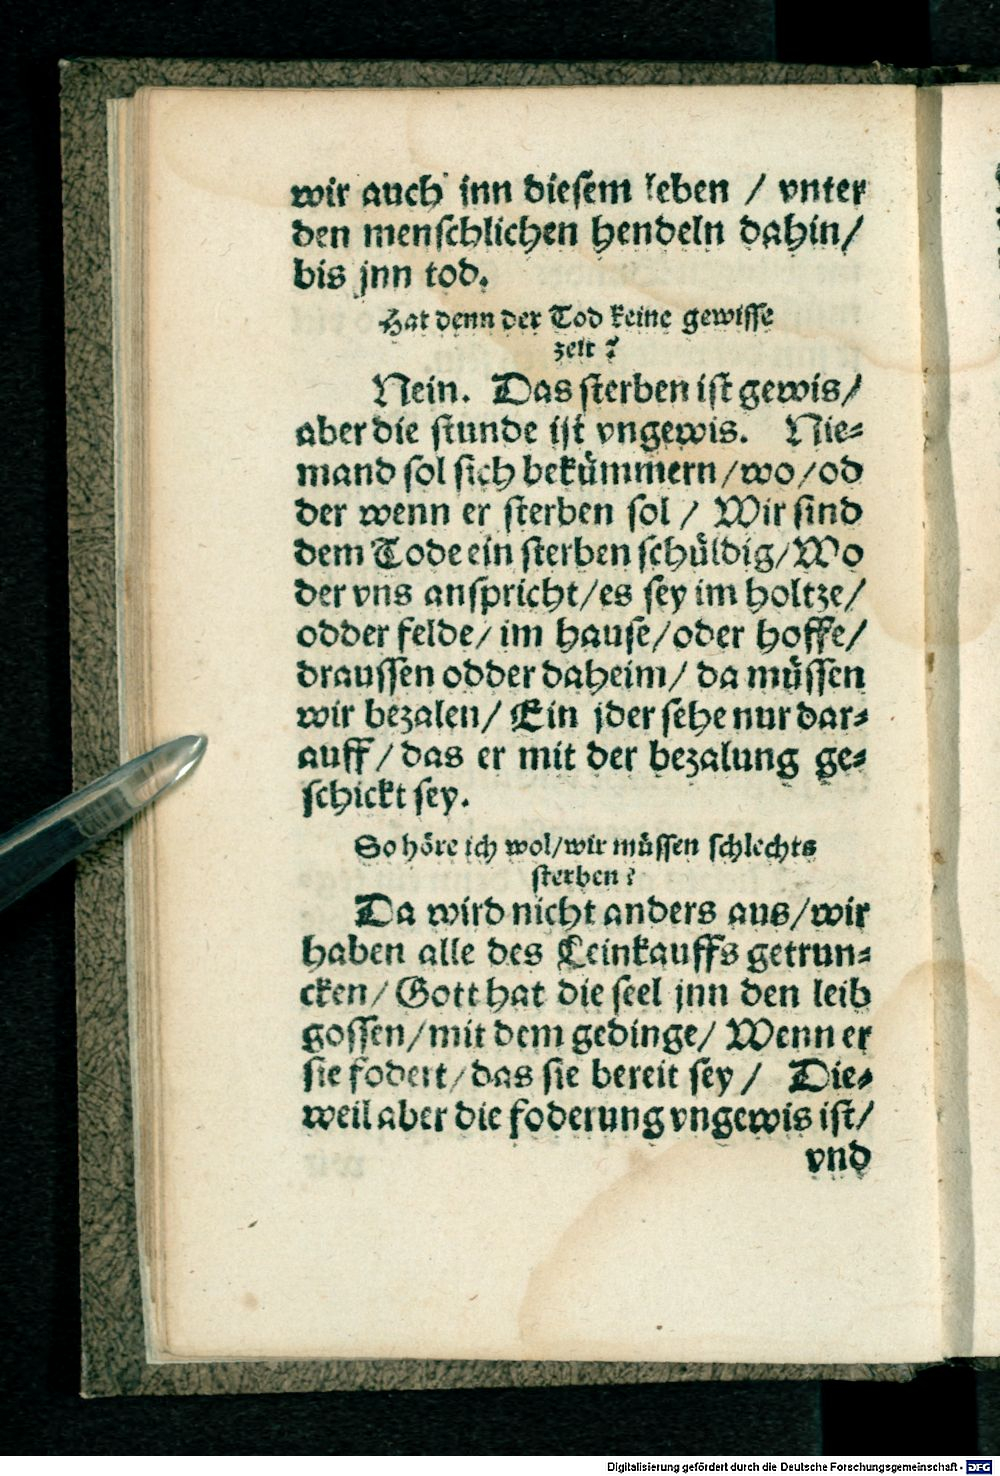 wir auch inn diesem leben / vnter
den menschlichen hendeln dahin/
bis jnn tod.
Hat denn der Tod keine gewisse
zeit?
Nein. Das sterben ist gewis/
aber die stunde ist vngewis. Nie⸗
mand sol sich bekümmern/wo/od
der wenn er sterben sol / Wir sind
dem Tode ein sterben schüldig/Wo
der vns anspricht/es sey im holtze/
odder felde/ im hause/oder hoffe/
draussen odder daheim/ da müssen
wir bezalen/ Ein jder sehe nur dar⸗
auff/das er mit der bezalung ge⸗
schickt sey.
So höre ich wol/wir müssen schlechts
sterben?
Da wird nicht anders aus/wir
haben alle des Leinkauffs getrun⸗
cken/Gott hat die seel jnn den leib
gossen/mit dem gedinge/ Wenn er
sie fodert/das sie bereit sey / Die⸗
weil aber die foderung vngewis ist/
vnd
Digitalisierung gefördert durch die Deutsche Forschungsgemeinschaft - DFG